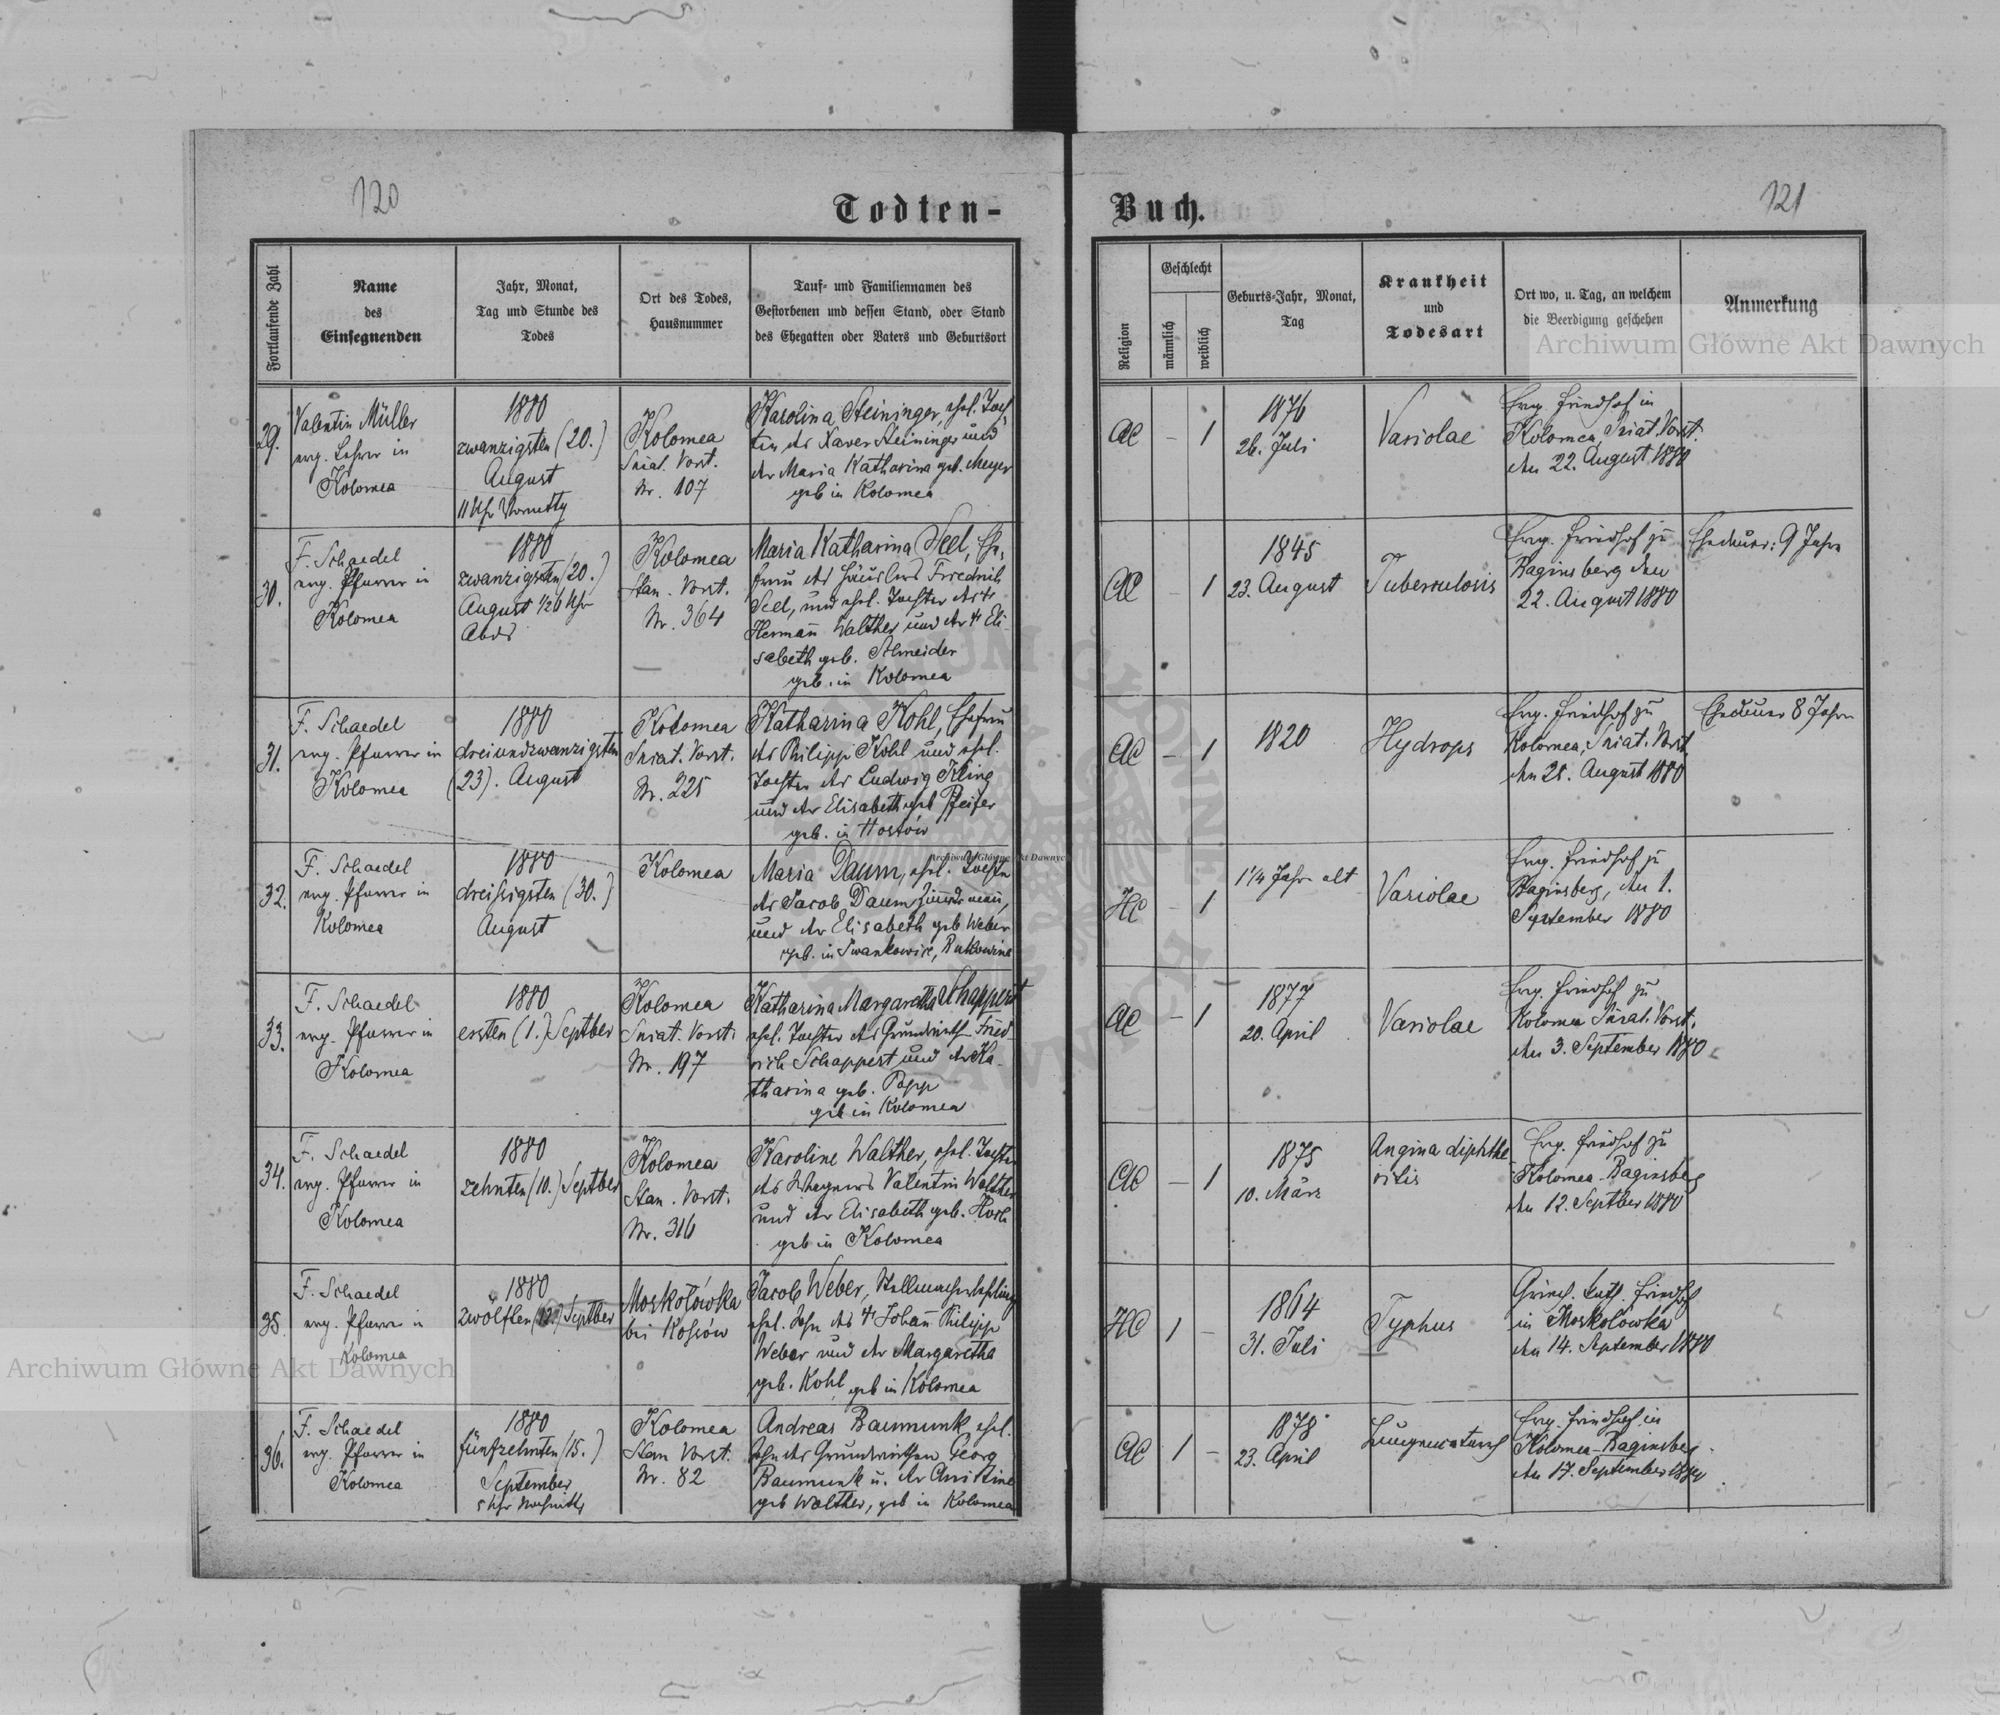 120
Todten-
Fortlaufende Zahl
Name
des
Einsegnenden
Jahr, Monat,
Tag und Stunde des
Todes
Ort des Todes,
Hausnummer
Tauf- und Familiennamen des
Gestorbenen und dessen Stand, oder Stand
des Ehegatten oder Vaters und Geburtsort
29.
Valentin Müller
evg. Lehrer in
Kolomea
1880
zwanzigsten (20.)
August
11 Uhr Vormittg
Kolomea
Sniat. Vorst.
Nr. 107
Karolina Steininger, ehel. Toch-
ter des Xaver Steininger und
der Maria Katharina geb. Meyer
geb in Kolomea
30.
F. Schaedel
evg. Pfarrer in
Kolomea
1880
zwanzigsten (20.)
August ½6 Uhr
Abds
Kolomea
Stan. Vorst.
Nr. 364
Maria Katharina Seel, Ehe-
frau des Häuslers Friedrich
Seel, und ehel. Tochter des †
Hermann Walther und der † Eli-
sabeth geb. Schneider
geb. in Kolomea
31.
F. Schaedel
evg. Pfarrer in
Kolomea
1880
dreiundzwanzigsten
(23). August
Kolomea
Sniat. Vorst.
Nr. 225
Katharina Kohl, Ehefrau
des Philipp Kohl und ehel.
Tochter des Ludwig Kling
und der Elisabeth geb Pfeifer
geb. in Hostów
32.
F. Schaedel
evg. Pfarrer in
Kolomea
1880
dreisigsten (30.)
August
Kolomea
Maria Daum, ehel. Tochter
des Jacob Daum, Zimmermann,
und der Elisabeth geb Weber
geb. in Iwankowice, Bukowina
33.
F. Schaedel
evg. Pfarrer in
Kolomea
1880
ersten (1.) Septber
Kolomea
Sniat. Vorst.
Nr. 197
Katharina Margaretha Schappert
ehel. Tochter des Grundwirth Fried-
rich Schappert und der Ka-
tharina geb. Popp
geb in Kolomea
34.
F. Schaedel
evg. Pfarrer in
Kolomea
1880
zehnten (10.) Septber
Kolomea
Stan. Vorst.
Nr. 316
Karoline Walther, ehel. Tochter
des Wagners Valentin Walther
und der Elisabeth geb. Horh
geb in Kolomea
35.
F. Schaedel
evg. Pfarrer in
Kolomea
1880
zwölften (12.) Septber
Moskołówka
bei Kosów
Jacob Weber, Stellmacherlehrling
ehel. Sohn des † Johann Philipp
Weber und der Margaretha
geb. Kohl geb in Kolomea
36.
F. Schaedel
evg. Pfarrer in
Kolomea
1880
fünfzehnten (15.)
September
5 Uhr Nachmittg
Kolomea
Stan Vorst.
Nr. 82
Andreas Baumunk ehel.
Sohn des Grundwirthen Georg
Baumunk u. der Christine
geb Walther, geb in Kolomea
121
Buch.
Religion
Geschlecht
männlich
weiblich
Geburts-Jahr, Monat,
Tag
Krankheit
und
Todesart
Ort wo, u. Tag, an welchem
die Beerdigung geschehen
Anmerkung
AC
–
1
1876
26. Juli
Variolae
Evg. Friedhof in
Kolomea, Sniat. Vorst.
den 22. August 1880
AC
–
1
1845
23. August
Tuberculosis
Evg. Friedhof zu
Baginsberg den
22. August 1880
Ehedauer: 9 Jahre
AC
–
1
1820
Hydrops
Evg. Friedhof zu
Kolomea, Sniat. Vorst
den 25. August 1880
Ehedauer 8 Jahre
HC
–
1
1¼ Jahr alt
Variolae
Evg. Friedhof zu
Baginsberg, den 1.
September 1880
AC
–
1
1877
20. April
Variolae
Evg. Friedhof zu
Kolomea Sniat. Vorst.
den 3. September 1880
AC
–
1
1875
10. März
Angina diphthe-
ritis
Evg. Friedhof zu
Kolomea-Baginsberg
den 12. Septber 1880
HC
1
–
1864
31. Juli
Typhus
Griech. kath. Friedhof
in Moskolówka
den 14. September 1880
AC
1
–
1878
23. April
Lungencatarrh
Evg. Friedhof in
Kolomea-Baginsberg
den 17. September 1880
Archiwum Główne Akt Dawnych
Archiwum Główne Akt Dawnych
Archiwum Główne Akt Dawnych